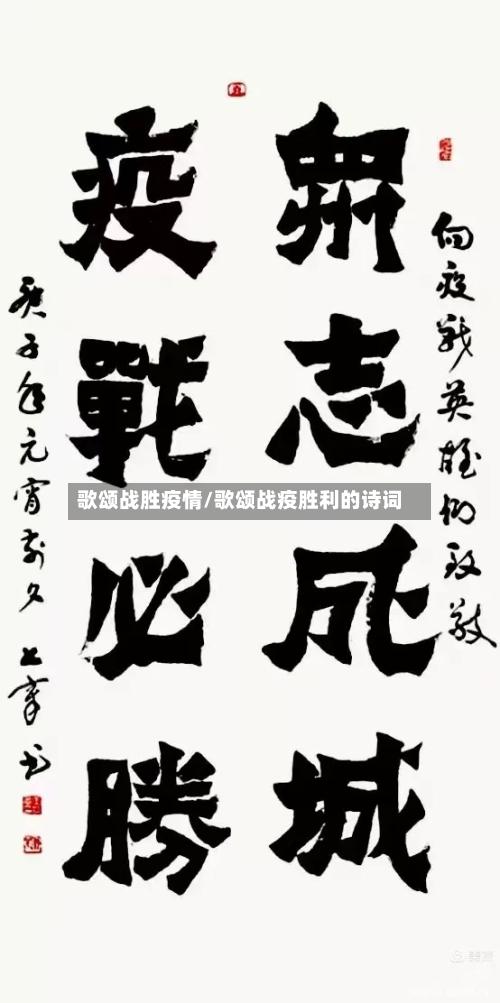 向疫战英雄们致敬
眾志成城
疫戰必勝
庚子年元宵前夕
歌颂战胜疫情/歌颂战疫胜利的诗词